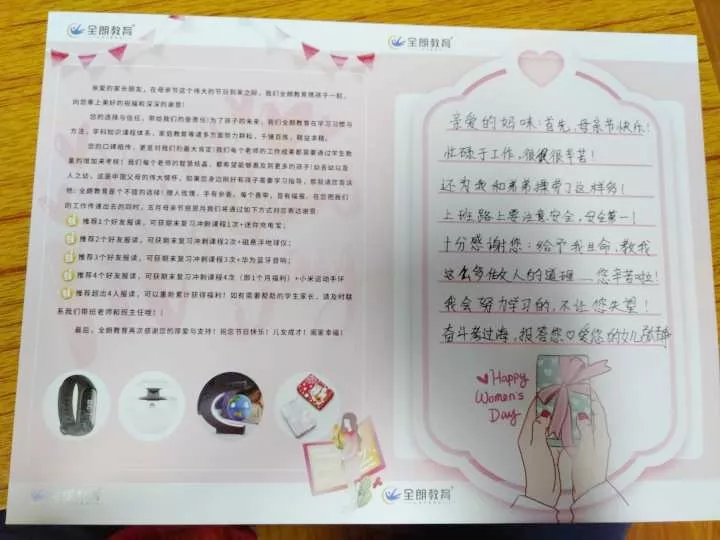 全朗教育
亲爱的家长朋友,在母亲节这个伟大的节日到来之际,我们全朗教育携孩子一起,
向您奉上美好的祝福和深深的谢意!
您的选择与信任,带给我们的是责任!为了孩子的未来,我们全朗教育在学习习惯与
方法,学科知识课程体系,家庭教育等诸多方面努力耕耘,千锤百炼,精益求精。
您的口碑相传,更是对我们的最大肯定!我们每个老师的工作成果都需要通过学生数
量的增加来考核!我们每个老师的智慧结晶,都希望能够惠及到更多的孩子!幼吾幼以及
人之幼,这是中国父母的伟大情怀,如果您身边刚好有孩子需要学习指导,那就请您告诉
他:全朗教育是个不错的选择!赠人玫瑰,手有余香,每个善举,皆有福报,在您把我们
的工作传递出去的同时,五月母亲节感恩月我们将通过如下方式向您表达谢意:
推荐1个好友报读,可获期末复习冲刺课程1次+迷你充电宝;
推荐2个好友报读,可获期末复习冲刺课程2次+磁悬浮地球仪;
推荐3个好友报读,可获期末复习冲刺课程3次+华为蓝牙音响;
推荐4个好友报读,可获期末复习冲刺课程4次(即1个月福利)+小米运动手环
推荐超出4人报读,可以重新累计获得福利!如有需要帮助的学生家长,请及时联
系我们带班老师和班主任哦!(
最后,全朗教育再次感谢您的厚爱与支持!祝您节日快乐!儿女成才!阖家幸福!
全朗教育
全朗教育
亲爱的妈咪:首先,母亲节快乐!
忙碌于工作,很很很辛苦!
还为我和弟弟操劳了这样多!
上班路上要注意安全,安全第一!
十分感谢您:给予我生命,教我
这么多做人的道理……您辛苦啦!
我会努力学习的,不让您失望!
奋斗考过海,报答您♡爱您的女儿张
Happy
Women's
Day
全朗教育